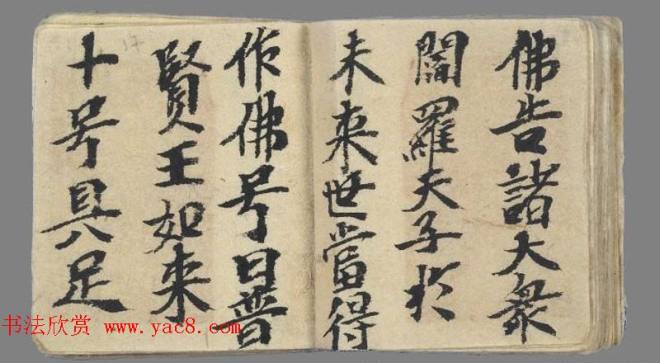 佛告諸大衆
閻羅天子於
未来世當得
作佛号曰普
賢王如来
十号具足
书法欣赏 www.yac8.com